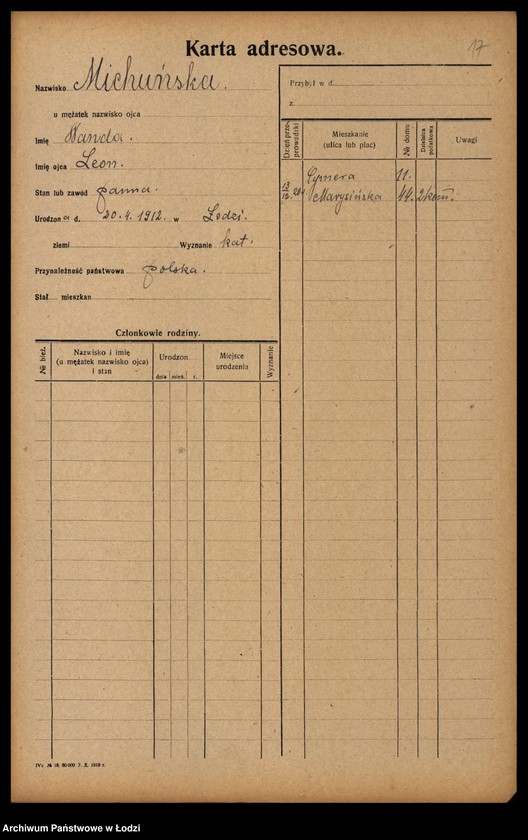 Karta adresowa.
17
Nazwisko Michuńska.
u mężatek nazwisko ojca
Imię Wanda.
Imię ojca Leon.
Stan lub zawód panna.
Urodzon a d. 20.4.1912. w Łodzi.
ziemi Wyznanie kat.
Przynależność państwowa polska.
Stał mieszkan
Przybył w d.
z
Dzień przeprowadzki
Mieszkanie
(ulica lub plac)
№ domu
Dzielnica podatkowa
Uwagi
Cymera 11.
13/12. Marysińska 44. 2 kom.
Członkowie rodziny.
№ bież.
Nazwisko i imię
(u mężatek nazwisko ojca)
i stan
Urodzon
dnia mies. r.
Miejsce
urodzenia
Wyznanie
IVa № 18. 50000 7. X. 1918 r.
Archiwum Państwowe w Łodzi